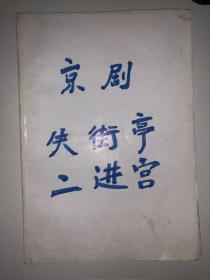 京剧
失街亭
二进宫